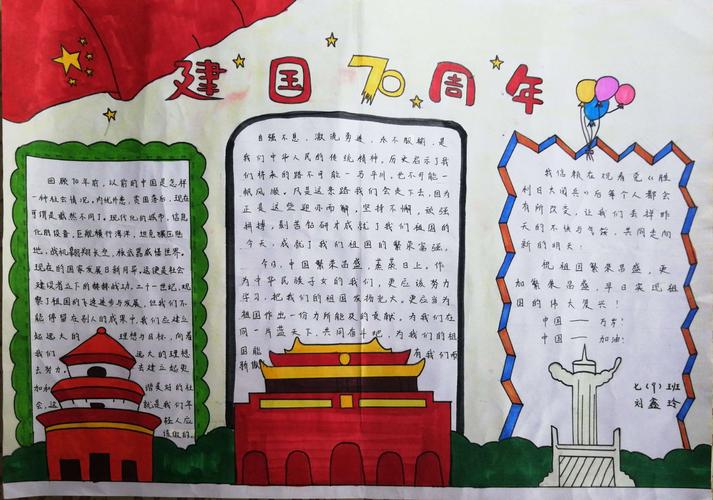 建国70周年
回顾70年前,以前的中国是怎样
一种社会情况,内忧外患,贫困落后,现在
可谓是截然不同了。现代化的城市,信息
化的设备,巨舰横行海洋,坦克碾压陆
地,战机翱翔长空,核武器威慑世界。
现在的国家发展日新月异,这便是社会
建设者立下的赫赫战功。二十一世纪,观
祭了祖国的飞速进步与发展,但我们不
能停留在别人的成果中,我们应建立
起远大的 理想与目标,向着
我们 远大的理想
去努力。 去建立起更
加和 谐美好的社
会,这 就是我们年
轻人应
该做的。
自强不息,激流勇进,永不服输,是
我们中华人民的传统精神。历史启示了我
们将来的路不可能一马平川,也不可能一
帆风顺。凡是这条路我们会走下去,因为
正是这些迎亦而解,坚持不懈,顽强
拼搏,刻苦钻研才成就了我们祖国的
今天,成就了我们祖国的繁荣富强。
今日,中国繁荣昌盛,蒸蒸日上。作
为中华民族子女的我们,更应该努力
学习,把我们的祖国发扬光大。更应当为
祖国作出一份力所能及的贡献。为我们在
同一片蓝天下,共同奋斗吧,为我们的祖
国能 有我们而
骄傲
我信赖在观看完《胜
利日大阅兵》后每个人都会
有所改变,让我们丢掉昨
天的不快与气馁,共同走向
新的明天!
祝祖国繁荣昌盛,更
加繁荣昌盛,早日实现祖
国的伟大复兴!
中国——万岁!
中国——加油!
七(9)班
刘鑫玲